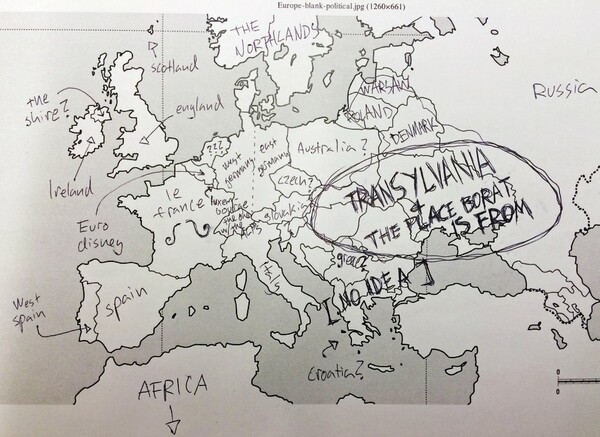 Europe-blank-political.jpg (1260×661)
THE
NORTHLANDS
scotland
the
shire?
england
Ireland
WARSAW
POLAND
DENMARK
Russia
???
west
germany
east
germany
Australia?
czech?
slovakia
le
france
Euro
disney
TRANSYLVANIA
+
THE PLACE BORAT
IS FROM
greece
[NO IDEA]
West
spain
spain
Croatia?
AFRICA